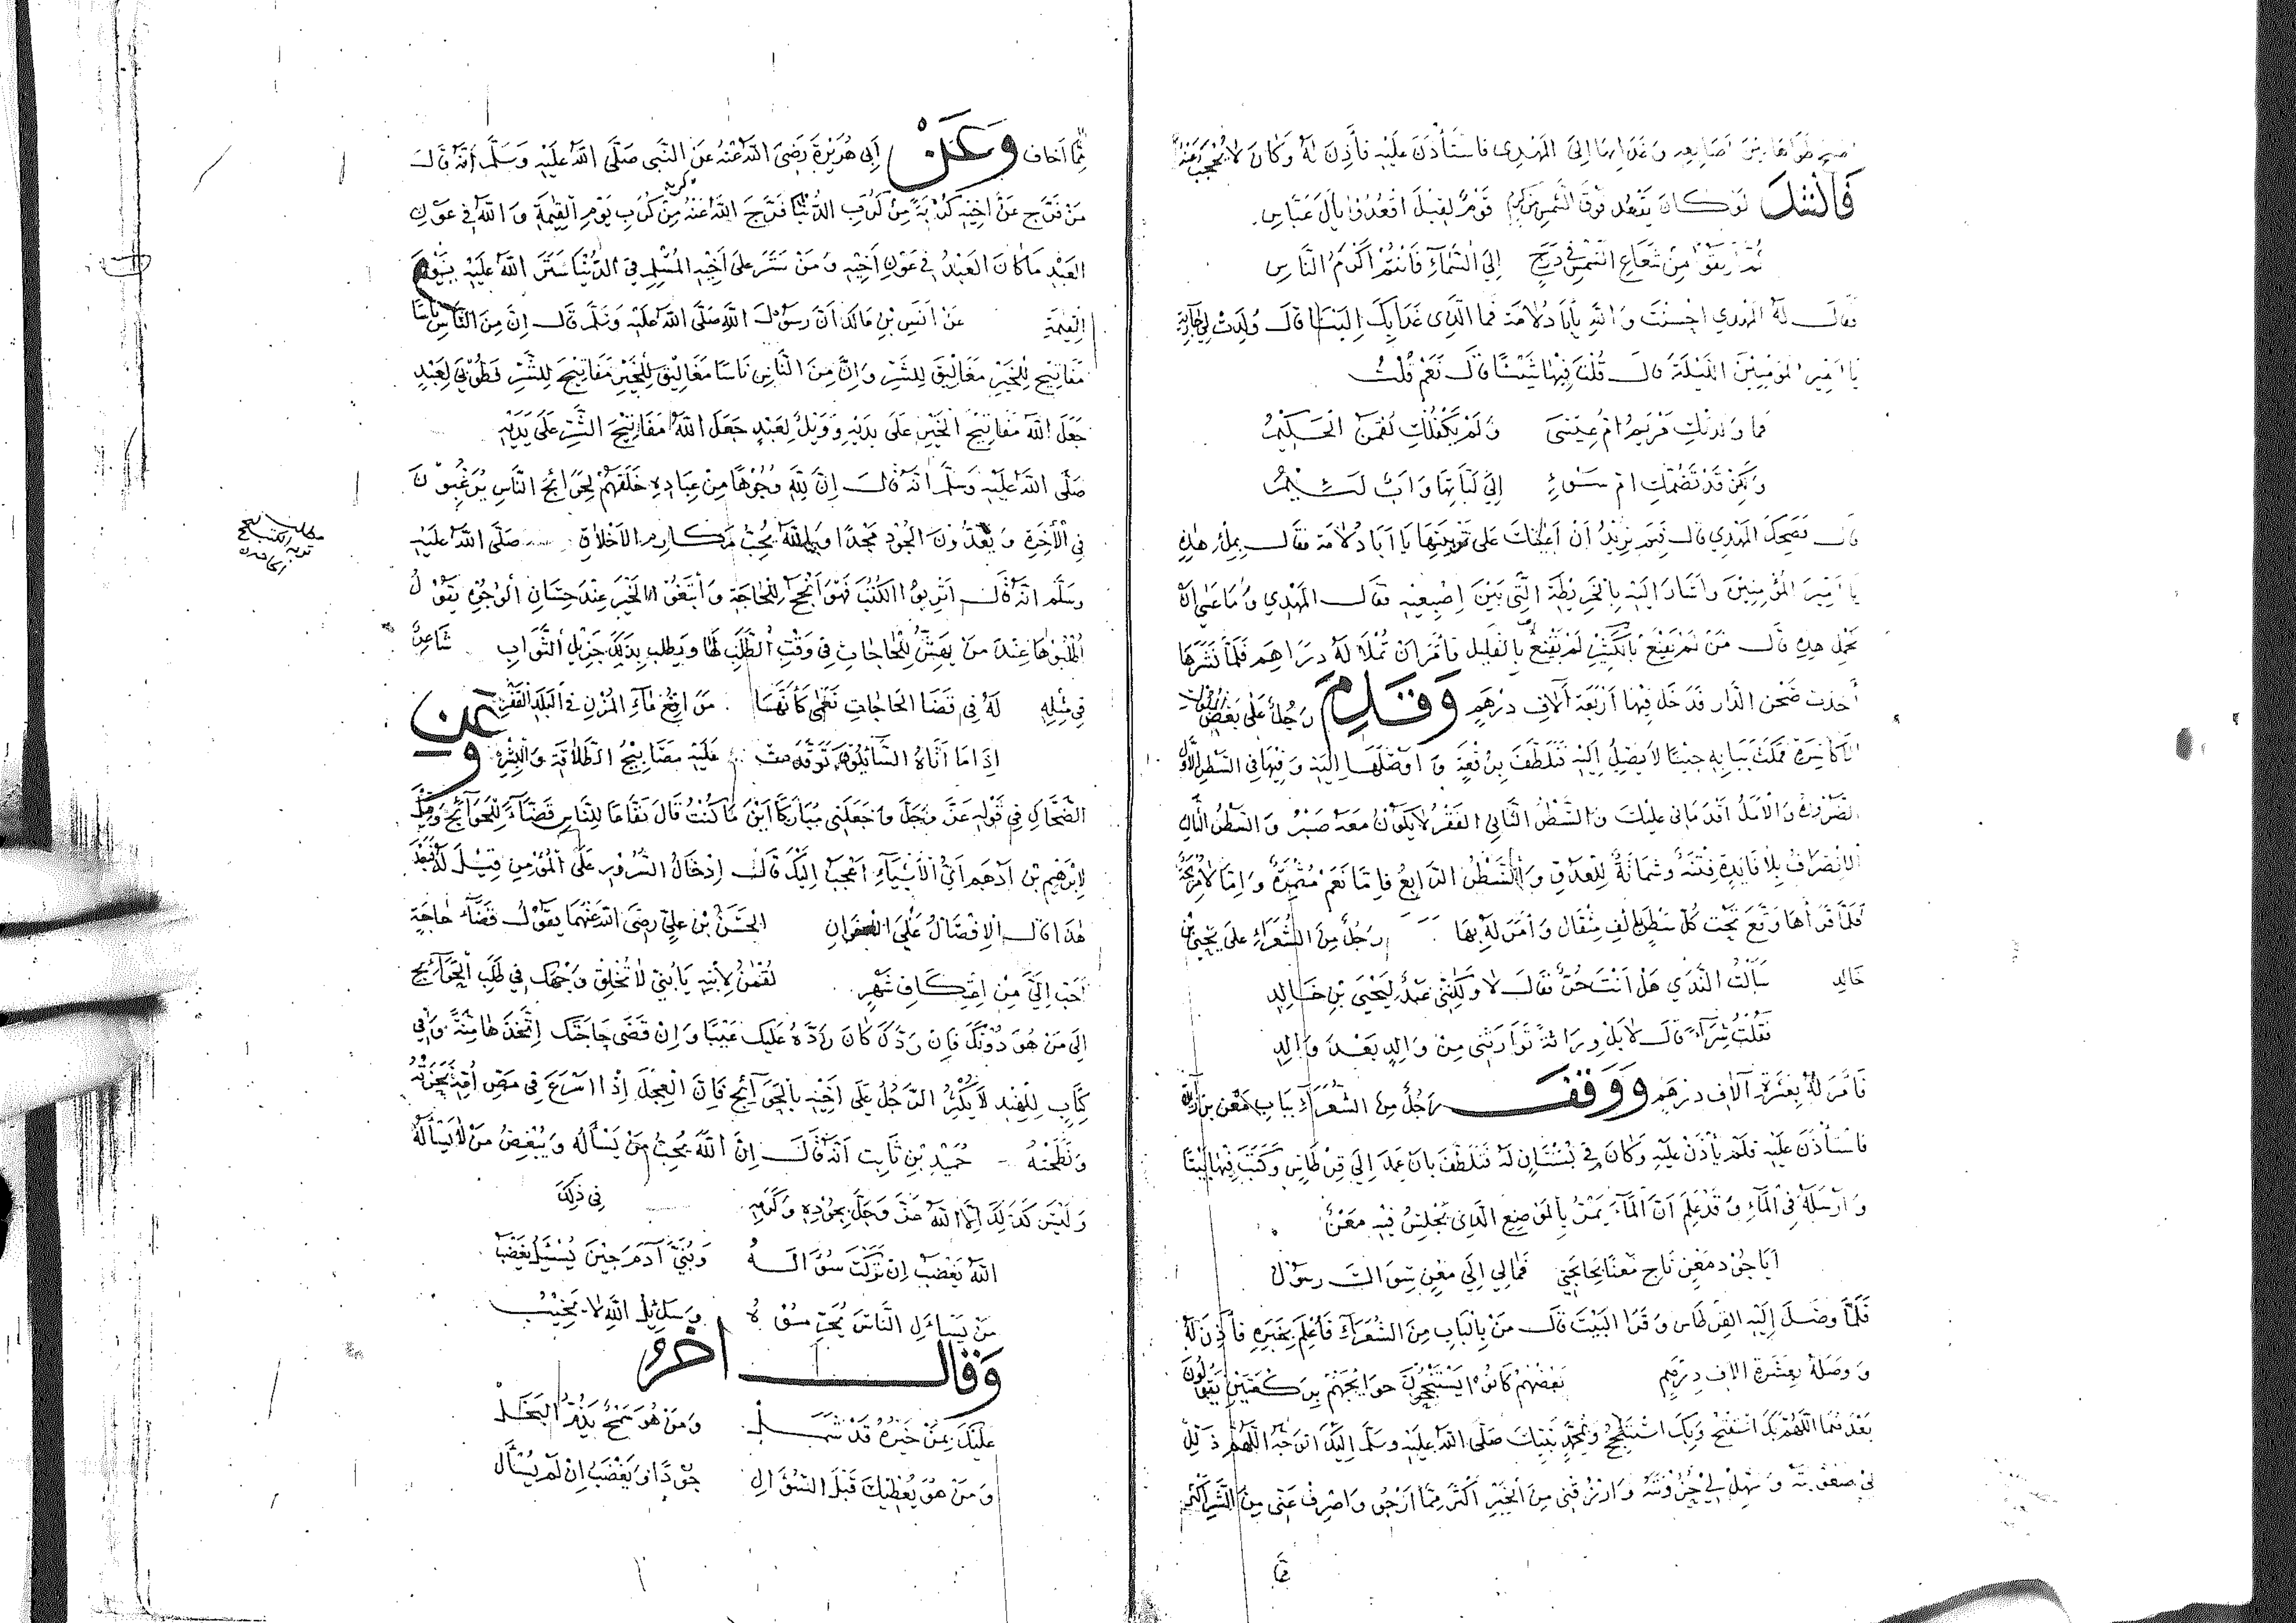 طواها بين اصابعه وغدا بها الى المهدي فاستأذن عليه فأذن له وكان لا يحجب عنه
فأنشد لو كان يقعد فوق الشمس من كرم قوم لقيل اقعدوا يا آل عباس
ثم ارتقوا من شعاع الشمس في درج الى السماء فأنتم أكرم الناس
فقال له المهدي احسنت والله يا أبا دلامة فما الذي غدا بك إلينا قال ولدت لي جارية
يا أمير المؤمنين الليلة قال قلت فيها شيئا قال نعم قلت
فما ولدتك مريم ام عيسى ولم يكفلك لقمن الحكيم
ولكن قد تضمك ام سوء إلى لباتها واب لئيم
قال فضحك المهدي قال فبم تريد أن أعينك على تربيتها يا أبا دلامة فقال بملء هذه
يا أمير المؤمنين وأشار إليه بالخريطة التي بين اصبعيه فقال المهدي وما عسى أن
تحمل هذه قال من لم يقنع بالكثير لم يقنع بالقليل فأمر ان تملأ له دراهم فلما نشرها
أخذت صحن الدار فدخل فيها أربعة آلاف درهم وقدم رجل على بعض
الأكاسرة فمكث ببابه حينا لا يصل إليه فتلطف برقعة وأوصلها إليه وفيها في السطر الاول
الضرورة والأمل أقدماني عليك والسطر الثاني الفقر لا يكون معه صبر والسطر الثالث
الانصراف بلا فايدة فتنة وشماتة للعدو والسطر الرابع فاما نعم مثمرة واما لا مريحة
فلما قرأها وقع تحت كل سطر بالف مثقال وأمر له بها رجل من الشعراء على يحيى بن
خالد سألت الندي هل أنت حر فقال لا ولكنني عبد ليحيى بن خالد
فقلت شراء قال لا بل وراثة توارثني من والد بعد والد
فأمر له بعشرة آلاف درهم ووقف رجل من الشعراء بباب معن بن زائدة
فاستأذن عليه فلم يأذن عليه وكان في بستان له فتلطف بان عمد إلى قرطاس وكتب فيها بيتا
وأرسله في الماء وقد علم أن الماء يمر بالموضع الذي يجلس فيه معن
أيا جود معن ناج معنا بحاجتي فمالي إلى معن سواك رسول
فلما وصل إليه القرطاس وقرا البيت قال من بالباب من الشعراء فأعلم بخبره فأذن له
ووصله بعشرة الاف درهم بعضهم كانوا يستنجحون حوايجهم بركعتين يقولون
بعدهما اللهم بك استفتح وبك استنجح وبمحمد نبيك صلى الله عليه وسلم إليك اتوجه اللهم ذلل
لي صعوبته وسهل لي حزونته وارزقني من الخير أكثر مما أرجو واصرف عني من الشر أكثر
مما
مما أخاف وعن أبي هريرة رضي الله عنه عن النبي صلى الله عليه وسلم أنه قال
من فرج عن أخيه كربة من كرب الدنيا فرج الله عنه كربة من كرب يوم القيمة والله في عون
العبد ما كان العبد في عون أخيه ومن ستر على أخيه المسلم في الدنيا ستر الله عليه يوم
القيمة عن أنس بن مالك أن رسول الله صلى الله عليه وسلم قال إن من الناس ناسا
مفاتيح للخير مغاليق للشر وإن من الناس ناسا مغاليق للخير مفاتيح للشر فطوبى لعبد
جعل الله مفاتيح الخير على يديه وويل لعبد جعل الله مفاتيح الشر على يديه
صلى الله عليه وسلم أنه قال إن لله وجوها من عباده خلقهم لحوائج الناس يرغبون
في الأخرة ويعدون الجود مجدا والله يحب مكارم الأخلاق صلى الله عليه
وسلم انه قال اتربوا الكتب فهو أنجح للحاجة وابتغوا الخير عند حسان الوجوه يقول
اطلبوها عند من يهش للحاجات في وقت الطلب لها ويطلب بذلك جزيل الثواب شاعر
في مثله له في قضا الحاجات نعمى كأنها من اوقع ماء المزن في البلد القفر
إذا ما أتاه السائلون توقدت عليه مصابيح الطلاقة والبشر وعن
الضحاك في قوله عز وجل وجعلني مباركا أين ما كنت قال نفاعا للناس قضاء للحوائج وقيل
لابرهيم بن أدهم أي الأشياء أعجب اليك قال إدخال السرور على المؤمن قيل له فبعد
هذا قال الإفضال على الاخوان الحسن بن علي رضي الله عنهما يقول قضاء حاجة
أحب إلي من اعتكاف شهر لقمن لابنه يا بني لا تخلق وجهك في طلب الحوائج
إلى من هو دونك فإن ردك كان رده عليك عيبا وإن قضى حاجتك اتخذها منة وفي
كتاب للهند لا يكثر الرجل على أخيه بالحوائج فإن العجل إذا اسرع في مص أمه نحرته
ونطحته حميد بن ثابت أنه قال إن الله يحب من يسأله ويبغض من لا يسأله
وليس كذلك إلا الله عز وجل بجوده وكرمه في ذلك
الله يغضب إن تركت سؤاله وبني آدم حين يسئل يغضب
من يسأل الناس يحرموه وسائل الله لا يخيب
وقال اخر
عليك بمن خيره قد شمل ومن هو سمح يذم البخل
ومن هو يعطيك قبل السؤال جودا ويغضب إن لم يسأل
مطلب